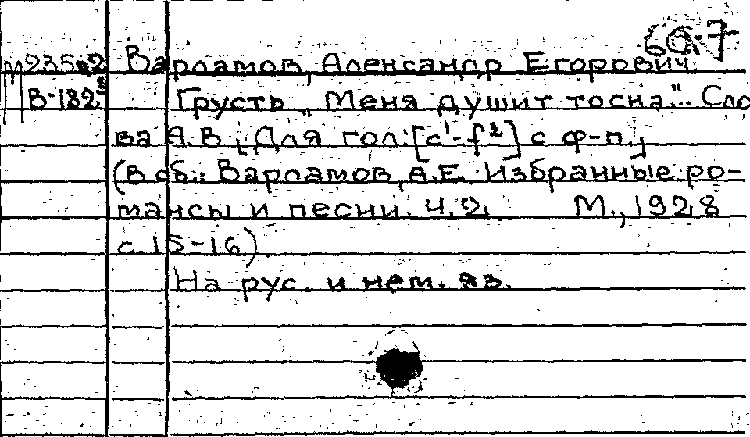 60.7
м235.2 Варламов, Александр Егорович.
В-182 Грусть „Меня душит тоска". Сло
ва А.В. Для гол. [c¹-f²] с ф-п.
(В сб.: Варламов, А.Е. Избранные ро-
мансы и песни. Ч.2. М., 1928
с. 15-16).
На рус. и нем. яз.